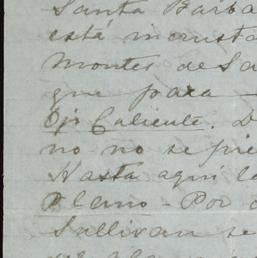 Santa Barba
está incrusta
Montes de Sa
que para
Ojo Caliente. D
no no se pie
Hasta aqui la
Plano - Por
Sullivan se